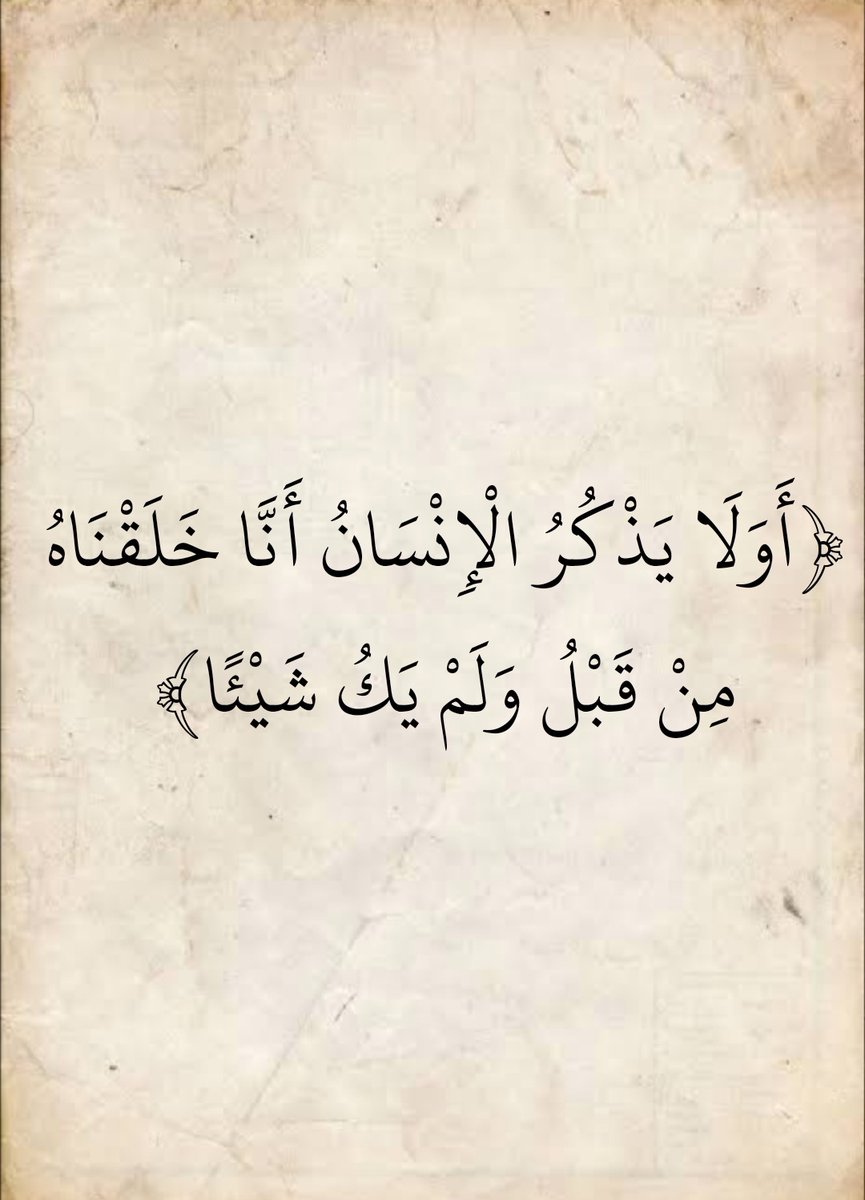 ﴿أَوَلَا يَذْكُرُ الْإِنْسَانُ أَنَّا خَلَقْنَاهُ
مِنْ قَبْلُ وَلَمْ يَكُ شَيْئًا﴾